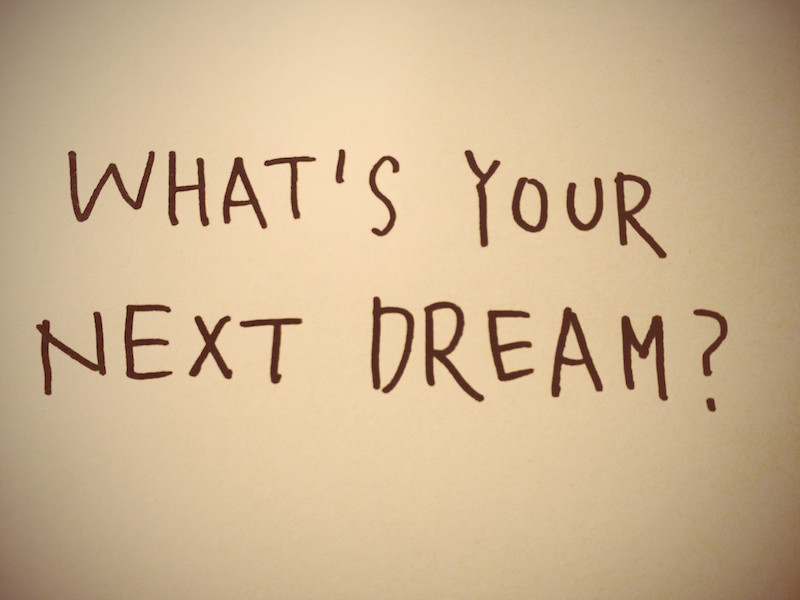 WHAT'S YOUR
NEXT DREAM?